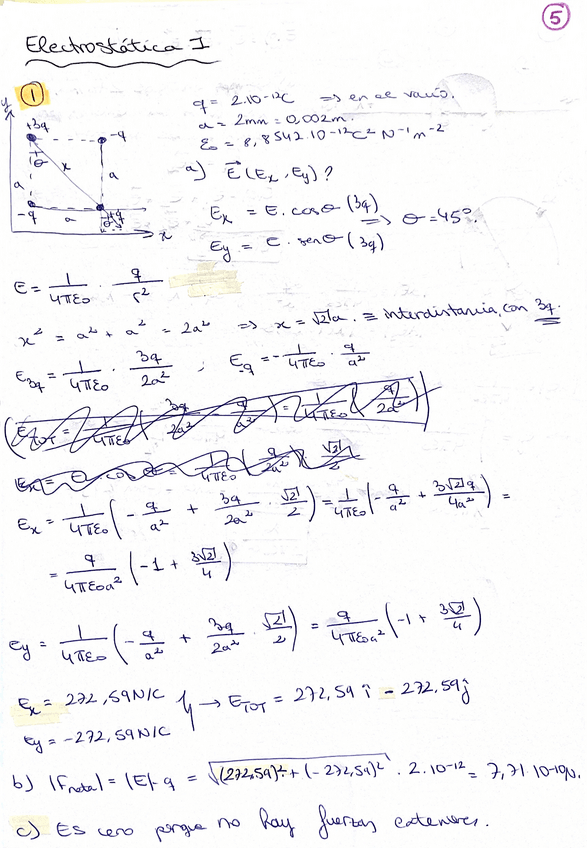 5
Electrostática I
1
q = 2.10-12C => en el vacío.
a = 2mm = 0,002m.
ε = 8,8542.10-12C² N-1 m-2
a) E⃗ (Ex, Ey)?
Ex = E. cosθ (3q) => θ = 45º.
Ey = E. senθ (3q)
y
+3q
-q
θ
x
a
a
-q
a
+q
θ
x
E = 1/4πε0 . q/r²
x² = a² + a² = 2a² => x = √2 a. ≡ interdistancia, con 3q.
E3q = 1/4πε0 . 3q/2a² ; Eq = - 1/4πε0 . q/a²
Ex = 1/4πε0 (- q/a² + 3q/2a² . √2/2) = 1/4πε0 (- q/a² + 3√2 q/4a²) =
= q/4πε0a² (-1 + 3√2/4)
Ey = 1/4πε0 (- q/a² + 3q/2a² . √2/2) = q/4πε0a² (-1 + 3√2/4)
Ex = 272,59 N/C } → ETOT = 272,59 î - 272,59 ĵ
Ey = -272,59 N/C
b) |Fnota| = |E|. q = √(272,59)² + (-272,59)² . 2.10-12 = 7,71.10-10N.
c) Es cero porque no hay fuerzas exteriores.